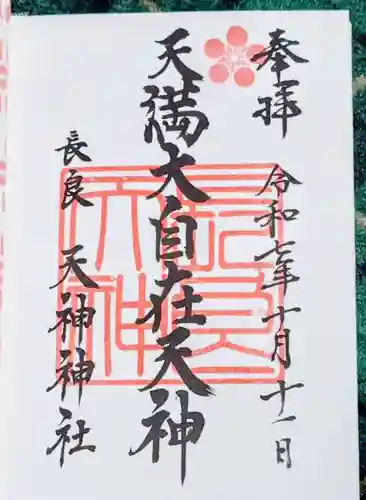 奉拝
令和七年十月十一日
天満大自在天神
長良
天神神社